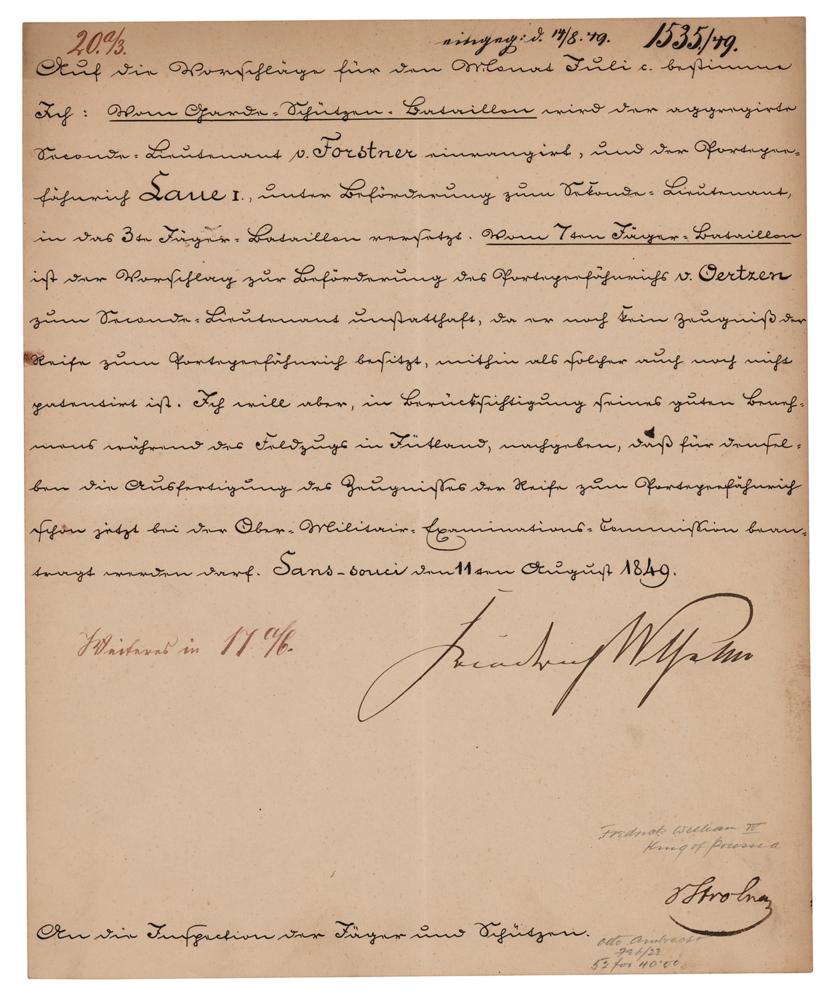 20.a/3.
eingeg: d. 14/8. 49. 1535/49.
Auf die Vorschläge für den Monat Juli c. bestimme
Ich: Vom Garde-Schützen-Bataillon wird der aggregirte
Seconde-Lieutenant v. Forstner einrangirt, und der Portepee-
fähnrich Laue I., unter Beförderung zum Sekonde-Lieutenant,
in das 3te Jäger-Bataillon versetzt. Vom 7ten Jäger-Bataillon
ist der Vorschlag zur Beförderung des Portepeefähnrichs v. Oertzen
zum Seconde-Lieutenant unstatthaft, da er noch kein Zeugniß der
Reife zum Portepeefähnrich besitzt, mithin als solcher auch noch nicht
patentirt ist. Ich will aber, in Berücksichtigung seines guten Beneh-
mens während des Feldzugs in Jütland, nachgeben, daß für densel-
ben die Ausfertigung des Zeugnisses der Reife zum Portepeefähnrich
schon jetzt bei der Ober-Militair-Examinations-Commission bean-
tragt werden darf. Sans-souci den 11ten August 1849.
Weiteres in 17.a/6.
Friedrich Wilhelm
Fredrick William IV
King of Prussia
An die Inspection der Jäger und Schützen.
Otto
53 for 40.00